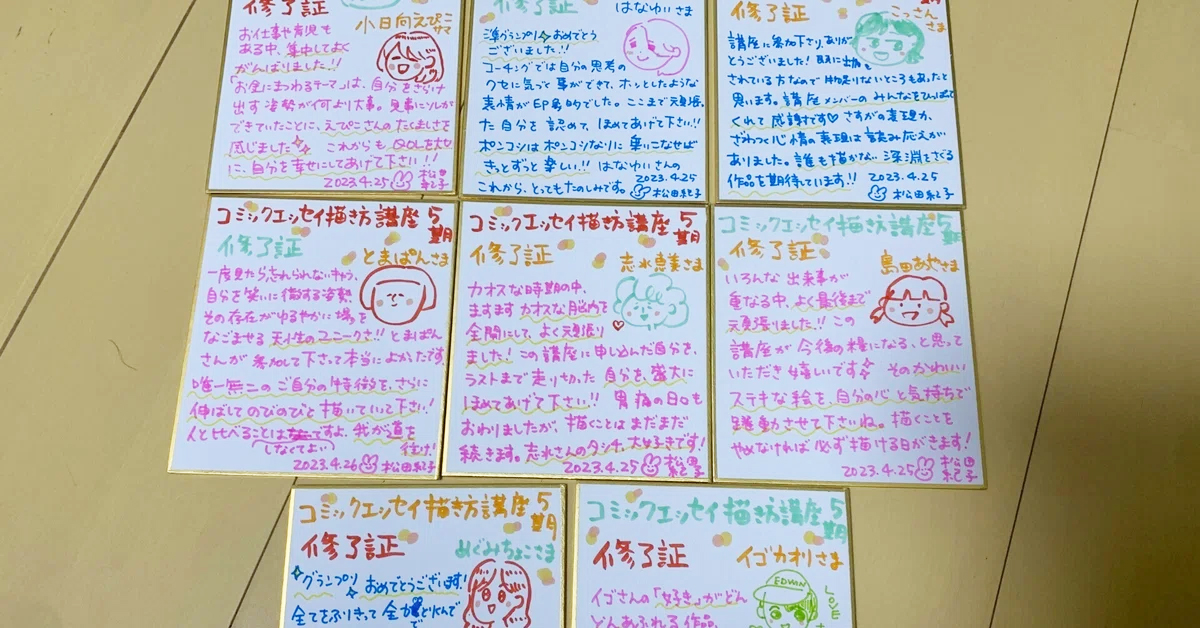 修了証
小日向えぴこ
サマ
お仕事や育児も
ある中、集中してよく
がんばりました!!
「お金にまつわるテーマ」は、自分をさらけ
出す姿勢が何より大事。見事にソレが
できていたことに、えぴこさんのたくましさを
感じました これからも QOLを大切
に、自分を幸せにしてあげて下さい!!
2023.4.25 松田紀子
修了証
はなゆいさま
準グランプリ おめでとう
ございました!!
コーチングでは自分の思考の
クセに気づく事ができて、ホッとしたような
表情が印象的でした。ここまで頑張っ
た自分を認めて、ほめてあげて下さい!!
ポンコツはポンコツなりに乗りこなせば
きっとずっと楽しい!! はなゆいさんの
これから、とってもたのしみです。
2023.4.25
松田紀子
修了証
こっさん
さま
講座に参加下さり、ありが
とうございました! 既に出版も
されている方なので物足りないところもあったと
思います。講座メンバーのみんなをひっぱって
くれて感謝です♡ さすがの表現力、
ざわつく心情の表現は読み応えが
ありました。誰も描かない深淵をさぐる
作品を期待しています!!
2023.4.25
松田紀子
コミックエッセイ描き方講座5期
修了証
とまぱんさま
一度見たら忘れられないキャラ、
自分を笑いに徹する姿勢
その存在がゆるやかに場を
なごませる天性のユニークさ!! とまぱん
さんが参加して下さって本当によかったです。
唯一無二のご自分の特徴を、さらに
伸ばしてのびのびと描いていって下さい!
人と比べることは
しなくてよい
ですよ。我が道を
往け!
2023.4.26 松田紀子
コミックエッセイ描き方講座5期
修了証
志水恵美さま
カオスな時期の中、
ますますカオスな脳内を
全開にして、よく頑張り
ました! この講座に申し込んだ自分を、
ラストまで走り切った自分を、盛大に
ほめてあげて下さい!! 胃痛の日々も
おわりましたが、描くことはまだまだ
続きます。志水さんのタッチ、大好きです!
2023.4.25 松田紀子
コミックエッセイ描き方講座5期
修了証
島田あやさま
いろんな出来事が
重なる中、よく最後まで
頑張りました!! この
講座が今後の糧になる、と思って
いただき嬉しいです そのかわいい
ステキな絵を、自分の心と気持ちで
躍動させて下さいね。描くことを
やめなければ必ず描ける日がきます!
2023.4.25 松田紀子
コミックエッセイ描き方講座5期
修了証
めぐみちょこさま
グランプリ おめでとうございます!
全てをふりきって全力で
コミックエッセイ描き方講座5期
修了証
イゴカオリさま
EDWIN
LOVE
イゴさんの「好き」がどん
どんあふれる作品、